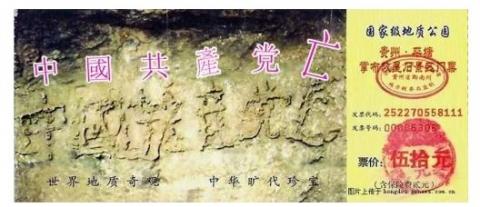 中國共產党亡
中國共産党亡
世界地质奇观 中华旷代珍宝
国家级地质公园
贵州·平塘
掌布
景区门票
贵州省黔南州
发票代码:252270558111
发票号码:
票价:伍拾元
(含保险费贰元)
图片上传于